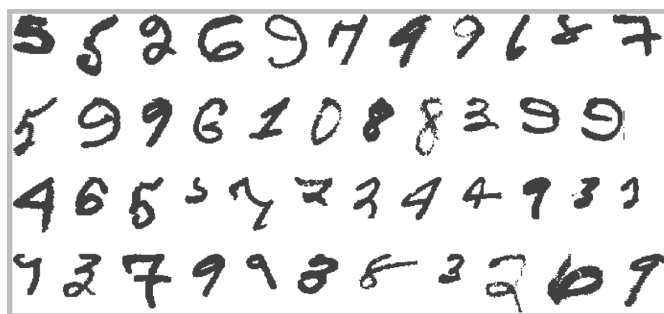 5 5 2 6 9 7 9 9 6 8 7
5 9 9 6 1 0 8 8 3 9 9
4 6 5 5 7 2 2 4 4 9 3 3
7 3 7 9 9 8 8 3 2 6 9